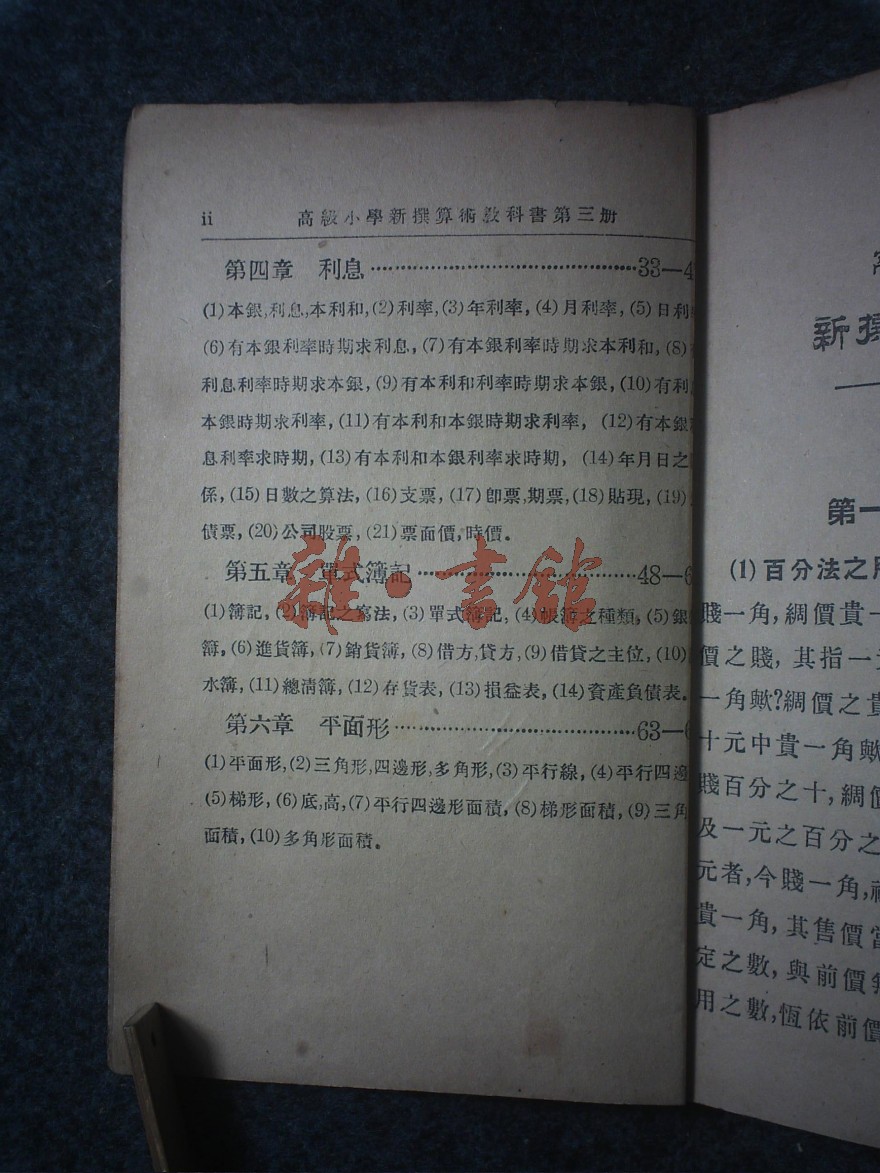 ii 高級小學新撰算術教科書第三册
第四章 利息……33—4
(1)本銀,利息,本利和,(2)利率,(3)年利率,(4)月利率,(5)日利
(6)有本銀利率時期求利息,(7)有本銀利率時期求本利和,(8)
利息利率時期求本銀,(9)有本利和利率時期求本銀,(10)有利
本銀時期求利率,(11)有本利和本銀時期求利率,(12)有本銀
息利率求時期,(13)有本利和本銀利率求時期,(14)年月日之
係,(15)日數之算法,(16)支票,(17)卽票,期票,(18)貼現,(19)
債票,(20)公司股票,(21)票面價,時價。
第五章 單式簿記……48—6
(1)簿記,(2)簿記之寫法,(3)單式簿記,(4)帳簿之種類,(5)銀
簿,(6)進貨簿,(7)銷貨簿,(8)借方,貸方,(9)借貸之主位,(10)
水簿,(11)總清簿,(12)存貨表,(13)損益表,(14)資產負債表。
第六章 平面形……63—6
(1)平面形,(2)三角形,四邊形,多角形,(3)平行線,(4)平行四邊
(5)梯形,(6)底,高,(7)平行四邊形面積,(8)梯形面積,(9)三角
面積,(10)多角形面積。
雜·書館
新撰
第一
(1)百分法之用
賤一角,綢價貴一
價之賤,其指一元
一角歟?綢價之貴
十元中貴一角歟
賤百分之十,綢價
及一元之百分之
元者,今賤一角,
貴一角,其售價當
定之數,與前價
用之數,恆依前價